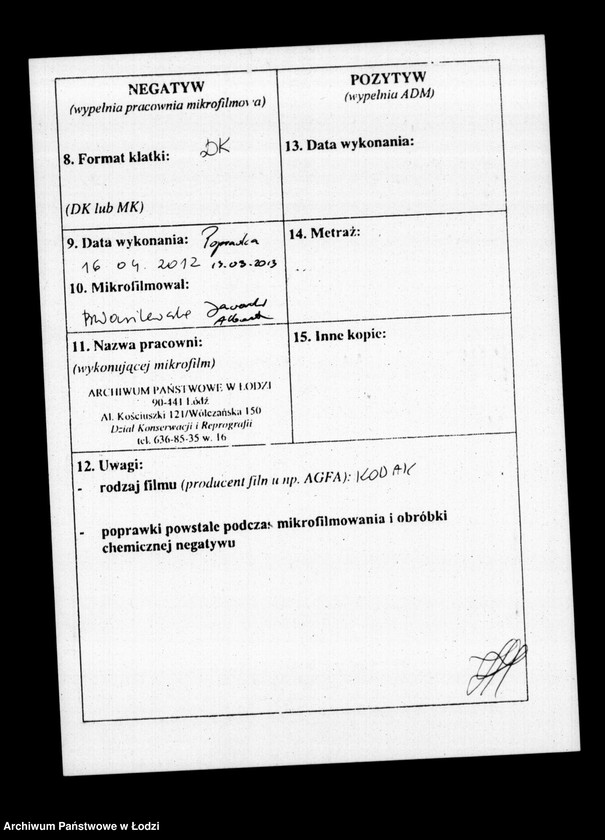 NEGATYW
(wypełnia pracownia mikrofilmowa)
8. Format klatki: DK
(DK lub MK)
9. Data wykonania: Poprawka
16 04. 2012 19.03.2013
10. Mikrofilmował:
11. Nazwa pracowni:
(wykonującej mikrofilm)
ARCHIWUM PAŃSTWOWE W ŁODZI
90-441 Łódź
Al. Kościuszki 121/Wólczańska 150
Dział Konserwacji i Reprografii
tel. 636-85-35 w. 16
POZYTYW
(wypełnia ADM)
13. Data wykonania:
14. Metraż:
15. Inne kopie:
12. Uwagi:
- rodzaj filmu (producent filmu np. AGFA): KODAK
- poprawki powstałe podczas mikrofilmowania i obróbki
chemicznej negatywu
Archiwum Państwowe w Łodzi